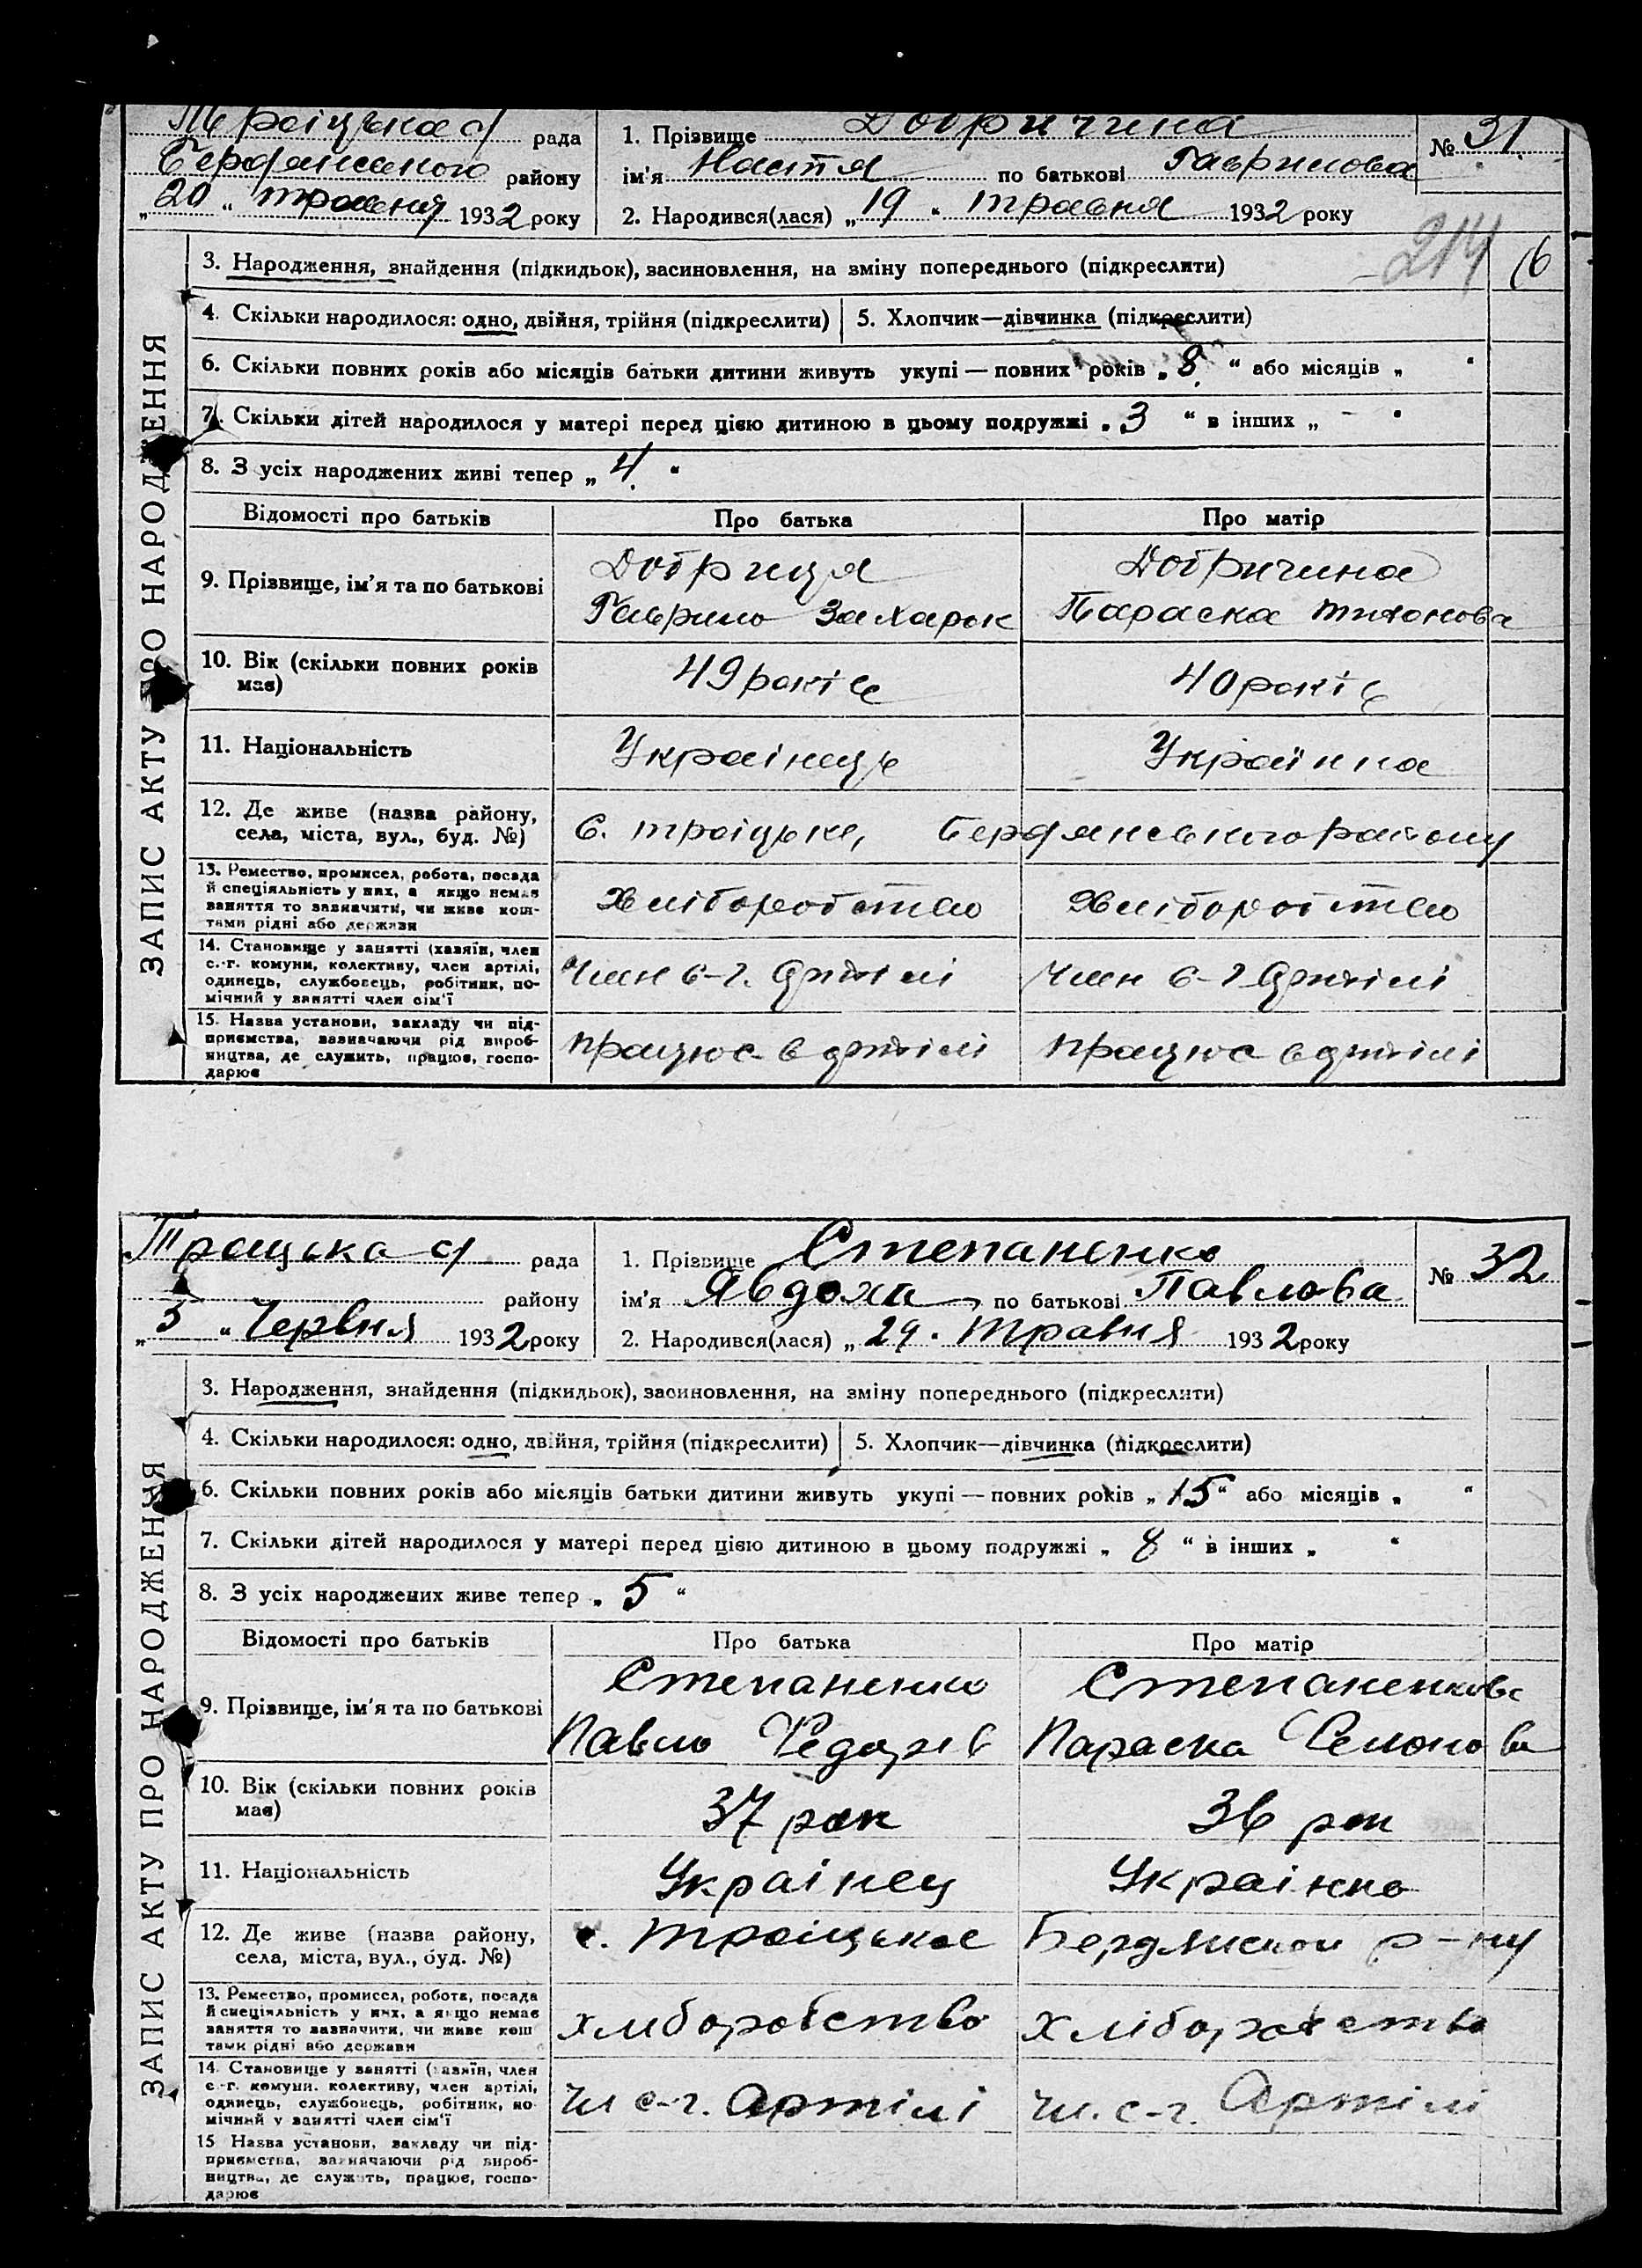 Троіцька с/ рада
Бердянського району
„20“ травня 1932 року
1. Прізвище Добричина
ім'я Настя по батькові Гаврилова
2. Народився(лася) „19“ травня 1932 року
№ 31.
214 16
ЗАПИС АКТУ ПРО НАРОДЖЕННЯ
3. Народження, знайдення (підкидьок), засиновлення, на зміну попереднього (підкреслити)
4. Скільки народилося: одно, двійня, трійня (підкреслити) 5. Хлопчик—дівчинка (підкреслити)
6. Скільки повних років або місяців батьки дитини живуть укупі — повних років „8.“ або місяців „ “
7. Скільки дітей народилося у матері перед цією дитиною в цьому подружжі „3“ в інших „ – “
8. З усіх народжених живі тепер „4.“
Відомості про батьків Про батька Про матір
9. Прізвище, ім'я та по батькові
Добриця Добричина
Гаврило Захарок Параска Тихонова
10. Вік (скільки повних років має) 49 років 40 років
11. Національність Україінець Українка
12. Де живе (назва району,
села, міста, вул., буд. №) с. Троіцьке, Бердянського району
13. Ремество, промисел, робота, посада
й спеціяльність у них, а якщо немає
заняття то зазначити, чи живе кош-
тами рідні або держави
Хліборобство Хліборобство
14. Становище у занятті (хазяїн, член
с.-г. комуни, колективу, член артілі,
одинець, службовець, робітник, по-
мічний у занятті член сім'ї
Член с-г. Артілі Член с-г Артілі
15. Назва установи, закладу чи під-
приємства, зазначаючи рід вироб-
ництва, де служить, працює, госпо-
дарює
працює в артілі працює в артілі
Троіцька с/ рада
району
„3“ Червня 1932 року
1. Прізвище Степаненко
ім'я Явдоха, по батькові Павлова
2. Народився(лася) „29. Травня 1932 року
№ 32
ЗАПИС АКТУ ПРО НАРОДЖЕННЯ
3. Народження, знайдення (підкидьок), засиновлення, на зміну попереднього (підкреслити)
4. Скільки народилося: одно, двійня, трійня (підкреслити) 5. Хлопчик—дівчинка (підкреслити)
6. Скільки повних років або місяців батьки дитини живуть укупі — повних років „15“ або місяців „ “
7. Скільки дітей народилося у матері перед цією дитиною в цьому подружжі „8“ в інших „ “
8. З усіх народжених живе тепер „5“
Відомості про батьків Про батька Про матір
9. Прізвище, ім'я та по батькові
Степаненко Степаненкова
Павло Федорів Параска Семонова
10. Вік (скільки повних років має) 37 рок 36 рок
11. Національність Украінец Украінка
12. Де живе (назва району,
села, міста, вул., буд. №) с. Троіцькое Бердянськои р-ну
13. Ремество, промисел, робота, посада
й спеціяльність у них, а якщо немає
заняття то зазначити, чи живе кош
тами рідні або держави
хліборобство хліборобство
14. Становище у занятті (хазяїн, член
с.-г. комуни, колективу, член артілі,
одинець, службовець, робітник, по-
мічний у занятті член сім'ї
Чл с-г. Артілі Чл. с-г. Артілі
15 Назва установи, закладу чи під-
приємства, зазначаючи рід вироб-
ництва, де служить, працює, госпо-
дарює